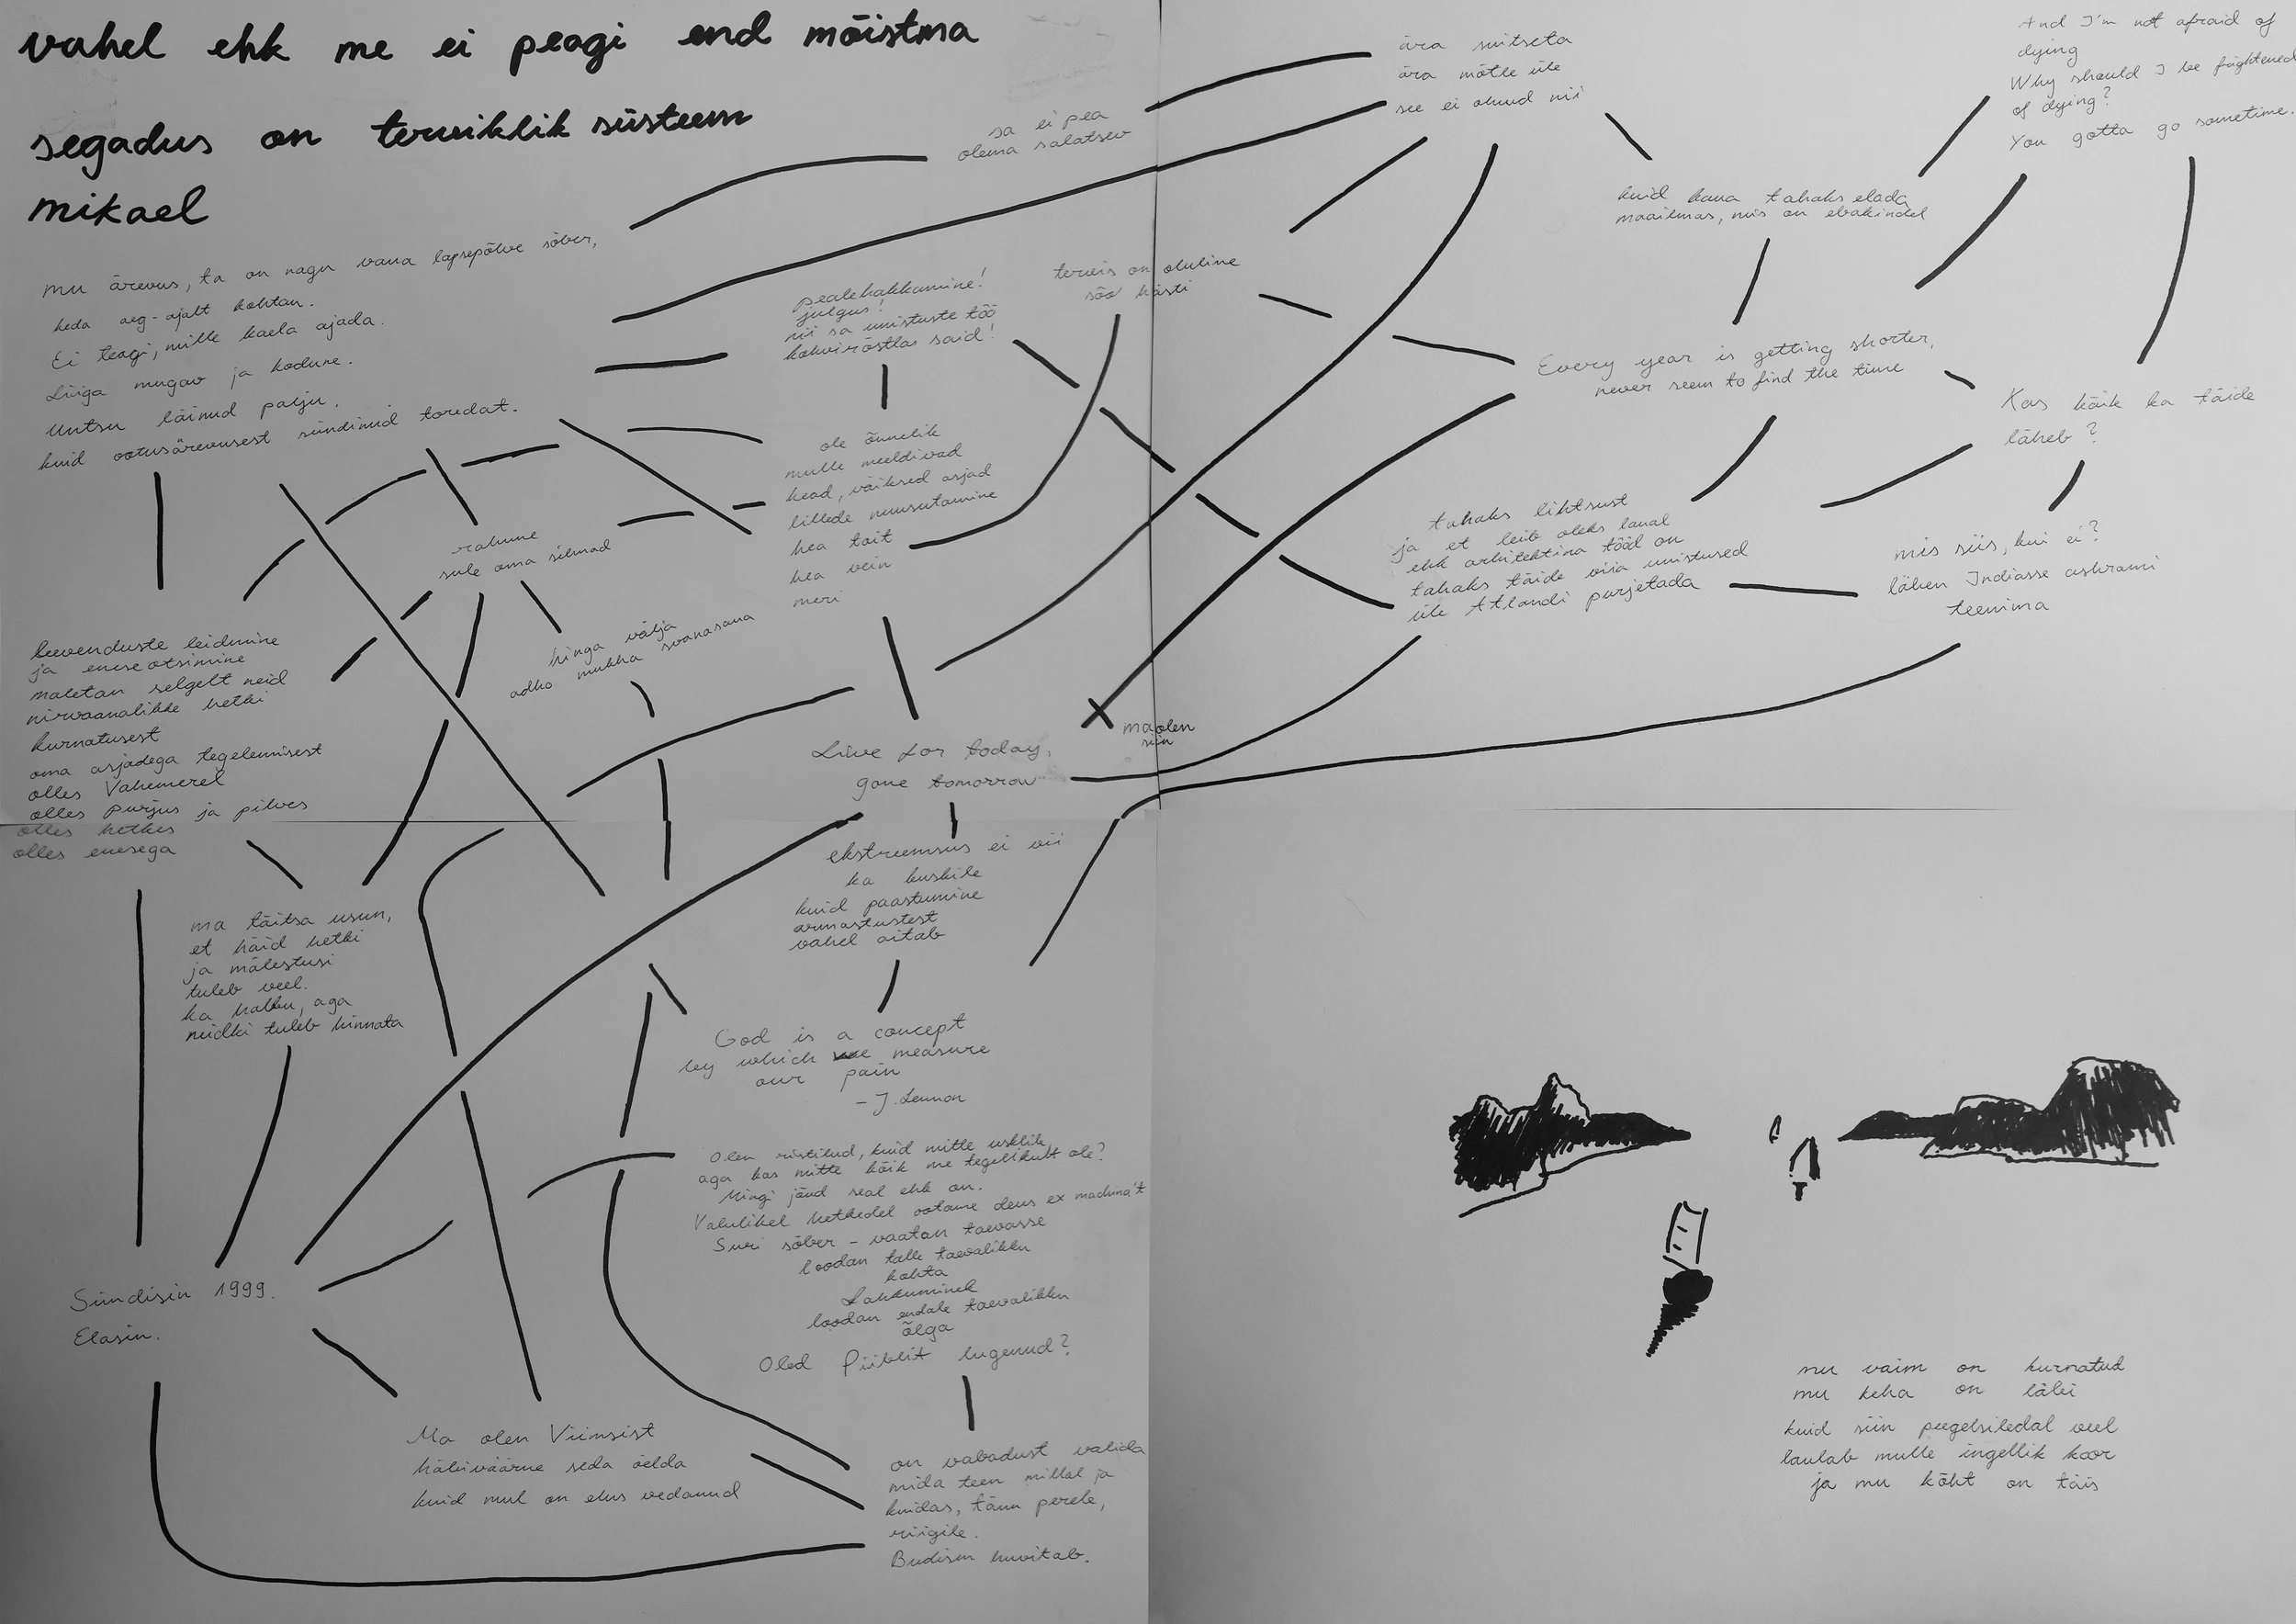 vahel ehk me ei peagi end mõistma
segadus on terviklik süsteem
mikael
mu ärevus, ta on nagu vana lapsepõlve sõber,
keda aeg-ajalt kohtan.
Ei teagi, mille kaela ajada.
Liiga mugav ja kodune.
untsu läinud palju,
kuid ootusärevusest sündinud toredat.
sa ei pea
olema salatsev
ära suitseta
ära mõtle üle
see ei olnud nii
And I'm not afraid of
dying
Why should I be frightened
of dying?
You gotta go sometime.
kuid kana tahaks elada
maailmas, mis on ebakindel
pealehakkamine!
julgus!
nii sa unistuste töö
kohviröstlas said!
tervis on oluline
söö hästi
Every year is getting shorter,
never seem to find the time
Kas kõik ka täide
läheb?
ole õnnelik
mulle meeldivad
head, väiksed asjad
lillede nuusutamine
hea toit
hea vein
meri
rahune
sule oma silmad
hinga välja
adho mukha svanasana
tahaks lihtsust
ja et leib oleks laual
ehk arhitektina tööl on
tahaks täide viia unistused
üle Atlandi purjetada
mis siis, kui ei?
lähen Indiasse ashrami
teenima
leevenduste leidmine
ja eneseotsimine
mäletan selgelt neid
nirvaanalikke hetki
kurnatusest
oma asjadega tegelemisest
olles Vahemerel
olles purjus ja pilves
olles hetkes
olles enesega
ma olen
siin
Live for today,
gone tomorrow
ekstreemsus ei vii
ka kuskile
kuid paastumine
armastustest
vahel aitab
ma täitsa usun,
et häid hetki
ja mälestusi
tuleb veel.
ka halbu, aga
neidki tuleb hinnata
God is a concept
by which we measure
our pain
- J. Lennon
Olen ristitud, kuid mitte usklik,
aga kas mitte kõik me tegelikult ole?
Mingi jõud seal ehk on.
Valulikel hetkedel ootame deus ex machina't
Suri sõber - vaatan taevasse
loodan talle taevalikku
kohta
Lahkuminek
loodan endale taevalikku
õlga
Oled Piiblit lugenud?
Sündisin 1999.
Elasin.
Ma olen Viimsist
häbiväärne seda öelda
kuid mul on elus vedanud
on vabadust valida
mida teen millal ja
kuidas, tänu perele,
riigile.
Budism huvitab.
mu vaim on kurnatud
mu keha on läbi
kuid siin peegelsiledal veel
laulab mulle ingellik koor
ja mu kõht on täis